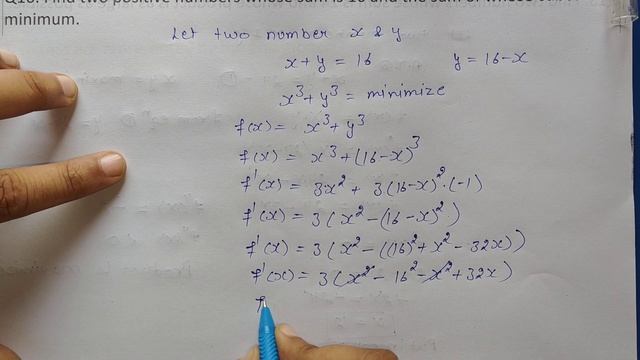 Find two positive numbers whose sum is 16 and the sum of whose
minimum.
Let two number x & y
x + y = 16 y = 16 - x
x³ + y³ = minimize
f(x) = x³ + y³
f(x) = x³ + (16 - x)³
f'(x) = 3x² + 3(16 - x)² · (-1)
f'(x) = 3(x² - (16 - x)²)
f'(x) = 3(x² - ((16)² + x² - 32x))
f'(x) = 3(x² - 16² - x² + 32x)